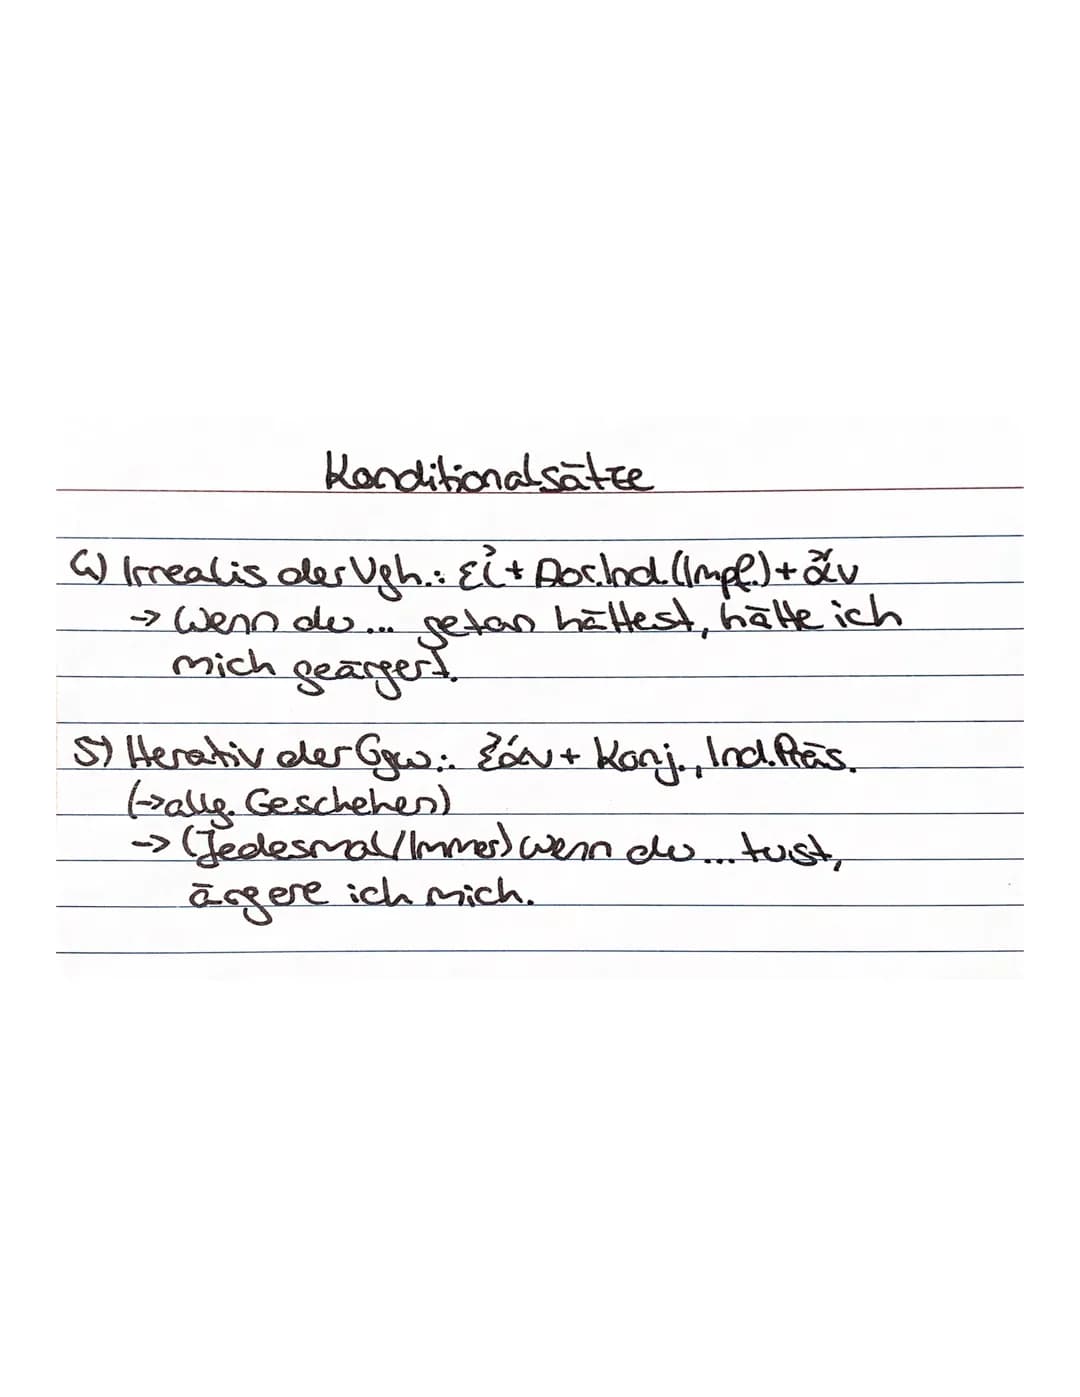 Konditionalsätze
4) Irrealis der Vgh.: εἰ + Aor.Ind. (Impf.) + ἄν
→ Wenn du ... getan hättest, hätte ich
mich geärgert.
5) Iterativ der Ggw.: ἐάν + Konj., Ind. Präs.
(→ allg. Geschehen)
→ (Jedesmal/Immer) wenn du ... tust,
ärgere ich mich.